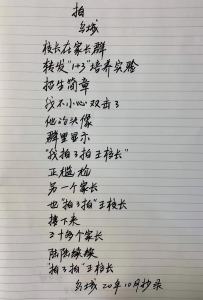 拍
乌城
校长在家长群
转发"1+3"培养实验
招生简章
我不小心双击了
他的头像
群里显示
"我拍了拍王校长"
正尴尬
另一个家长
也"拍了拍"王校长
接下来
二十多个家长
陆陆续续
"拍了拍"王校长
乌城 20年10月抄录